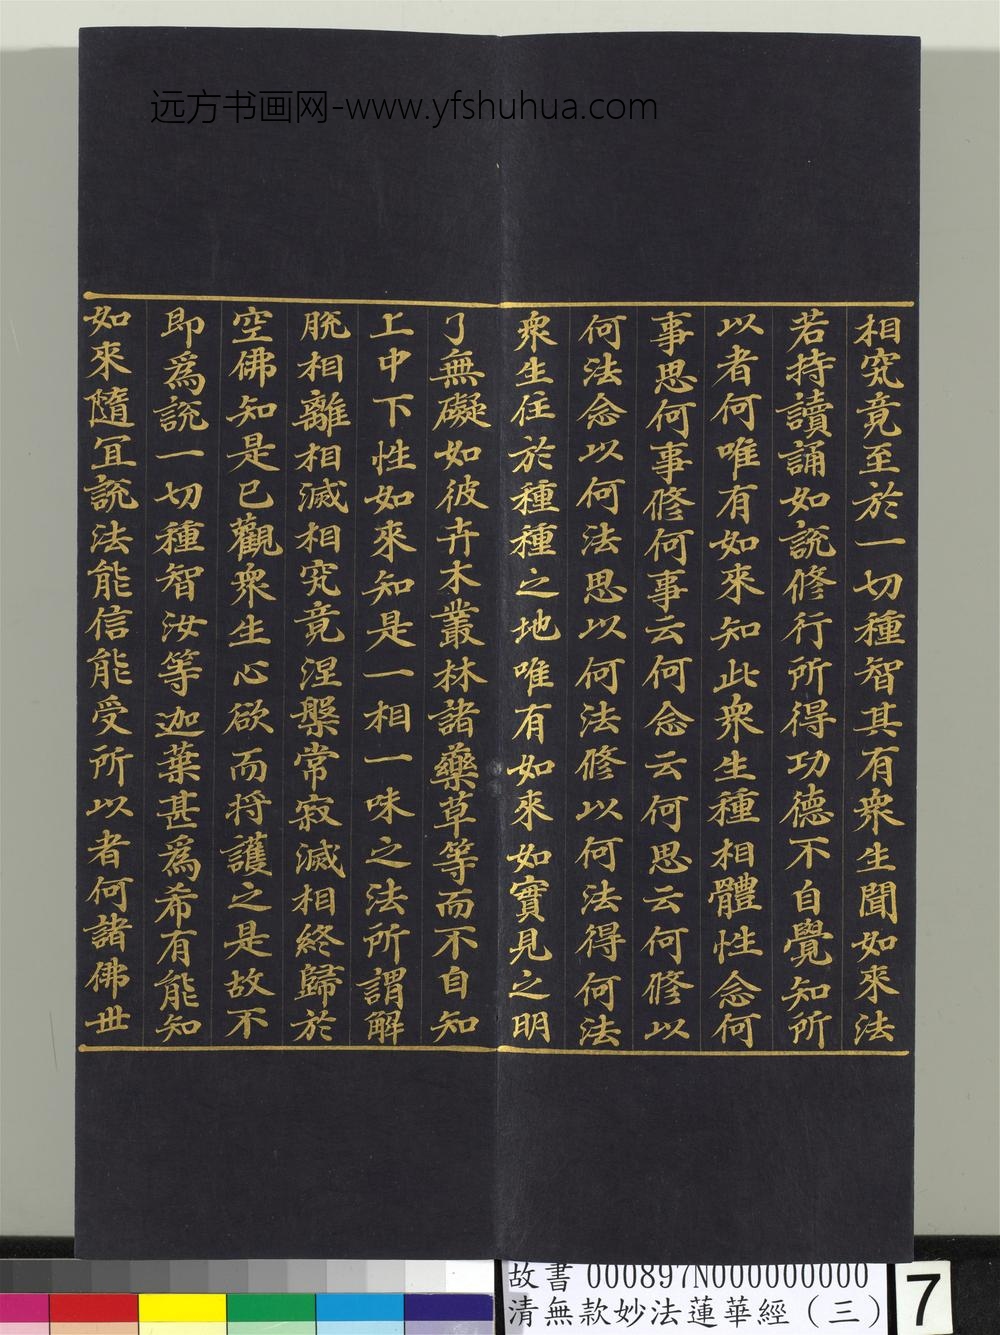 远方书画网-www.yfshuhua.com
相究竟至於一切種智其有衆生聞如來法
若持讀誦如說修行所得功德不自覺知所
以者何唯有如來知此衆生種相體性念何
事思何事修何事云何念云何思云何修以
何法念以何法思以何法修以何法得何法
衆生住於種種之地唯有如來如實見之明
了無礙如彼卉木叢林諸藥草等而不自知
上中下性如來知是一相一味之法所謂解
脫相離相滅相究竟涅槃常寂滅相終歸於
空佛知是已觀衆生心欲而将護之是故不
即爲說一切種智汝等迦葉甚爲希有能知
如來隨冝說法能信能受所以者何諸佛世
故書 000897N000000000
清無款妙法蓮華經（三）
7